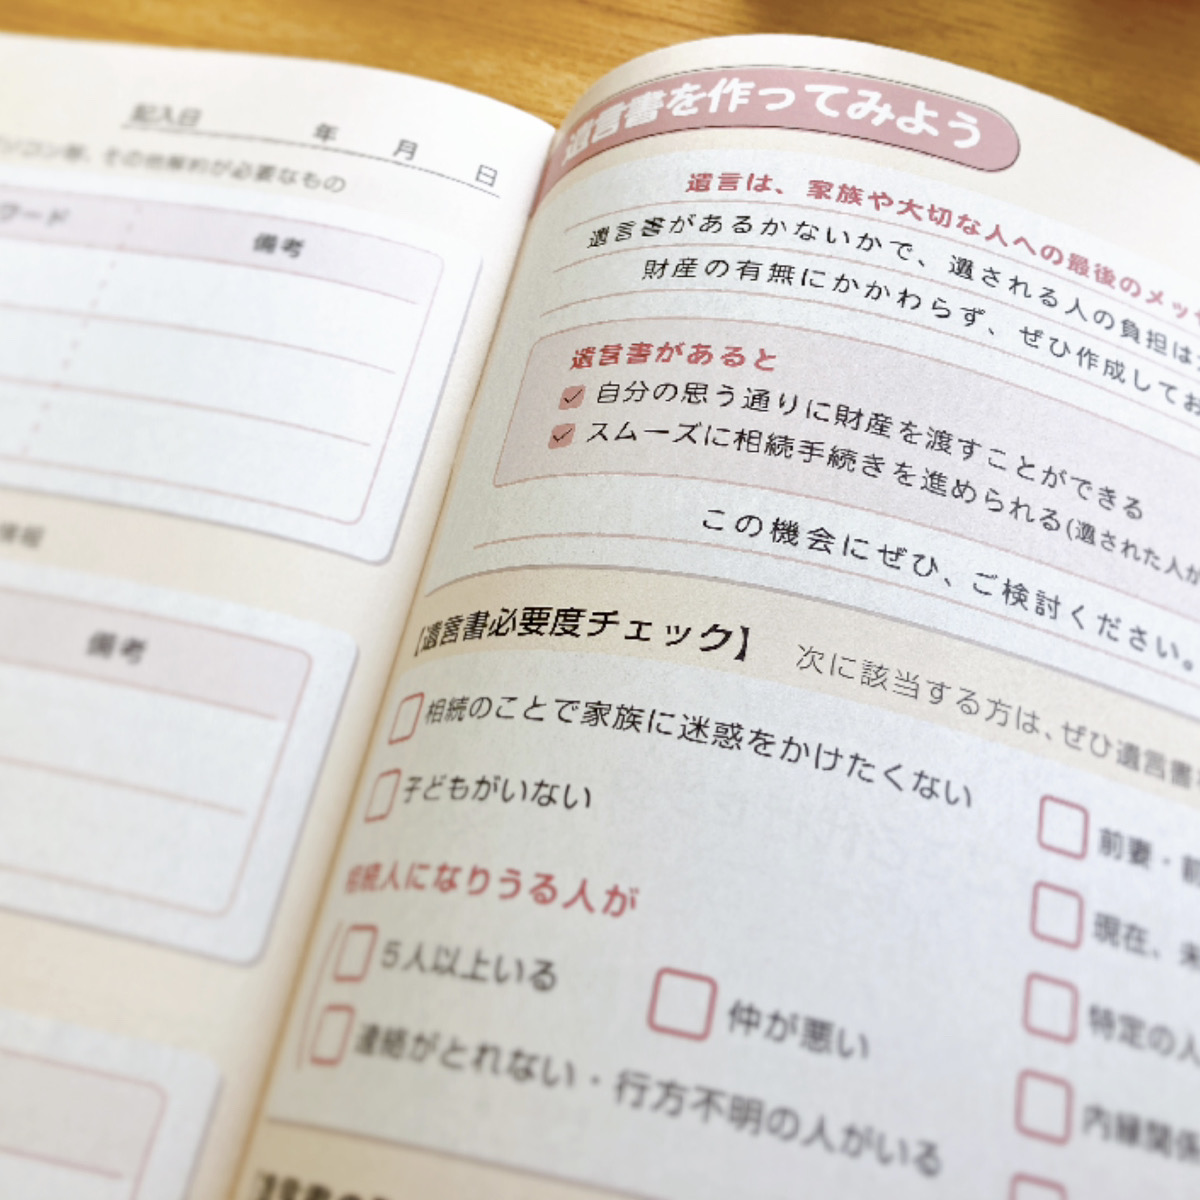 記入日 年 月 日
ソコン等、その他解約が必要なもの
ワード 備考
情報
備考
遺言書を作ってみよう
遺言は、家族や大切な人への最後のメッ
遺言書があるかないかで、遺される人の負担は
財産の有無にかかわらず、ぜひ作成してお
遺言書があると
自分の思う通りに財産を渡すことができる
スムーズに相続手続きを進められる(遺された人が
この機会にぜひ、ご検討ください。
【遺言書必要度チェック】 次に該当する方は、ぜひ遺言書
相続のことで家族に迷惑をかけたくない
子どもがいない
相続人になりうる人が
5人以上いる 仲が悪い
連絡がとれない・行方不明の人がいる
前妻・前
現在、未
特定の人
内縁関係